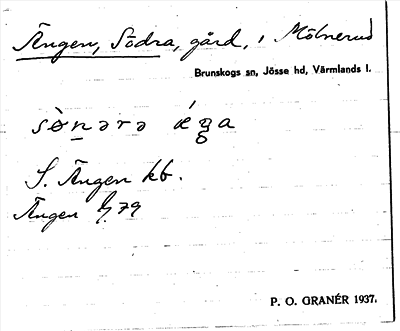 Ängen, Södra, gård, i Mölnerud
Brunskogs sn, Jösse hd, Värmlands l.
sön̲ərə
S. Ängen kb.
Ängen 79
P. O. GRANÉR 1937.